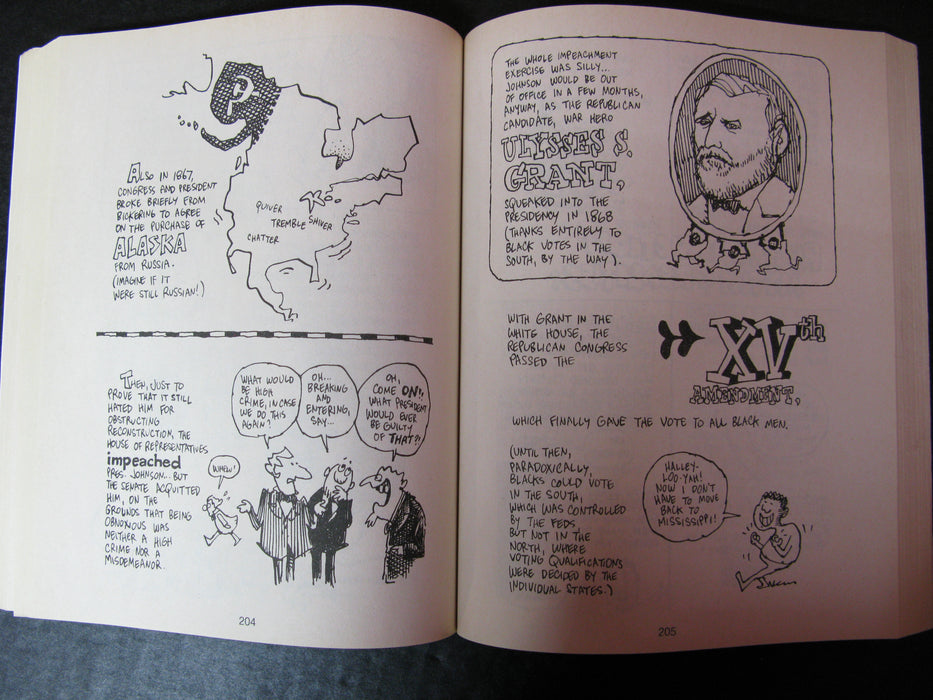 ALSO IN 1867,
CONGRESS AND PRESIDENT
BROKE BRIEFLY FROM
BICKERING TO AGREE
ON THE PURCHASE OF
ALASKA
FROM RUSSIA.
(IMAGINE IF IT
WERE STILL RUSSIAN!)
QUIVER
TREMBLE SHIVER
CHATTER
THEN, JUST TO
PROVE THAT IT STILL
HATED HIM FOR
OBSTRUCTING
RECONSTRUCTION, THE
HOUSE OF REPRESENTATIVES
impeached
PRES. JOHNSON... BUT
THE SENATE ACQUITTED
HIM, ON THE
GROUNDS THAT BEING
OBNOXIOUS WAS
NEITHER A HIGH
CRIME NOR A
MISDEMEANOR.
WHEW!
WHAT WOULD
BE HIGH
CRIME, IN CASE
WE DO THIS
AGAIN?
OH...
BREAKING
AND
ENTERING,
SAY...
OH,
COME ON!!
WHAT PRESIDENT
WOULD EVER
BE GUILTY
OF THAT?!
204
THE WHOLE IMPEACHMENT
EXERCISE WAS SILLY...
JOHNSON WOULD BE OUT
OF OFFICE IN A FEW MONTHS,
ANYWAY, AS THE REPUBLICAN
CANDIDATE, WAR HERO
ULYSSES S.
GRANT,
SQUEAKED INTO THE
PRESIDENCY IN 1868
(THANKS ENTIRELY TO
BLACK VOTES IN THE
SOUTH, BY THE WAY).
WITH GRANT IN THE
WHITE HOUSE, THE
REPUBLICAN CONGRESS
PASSED THE
XVth
AMENDMENT,
WHICH FINALLY GAVE THE VOTE TO ALL BLACK MEN.
(UNTIL THEN,
PARADOXICALLY,
BLACKS COULD VOTE
IN THE SOUTH,
WHICH WAS CONTROLLED
BY THE FEDS,
BUT NOT IN THE
NORTH, WHERE
VOTING QUALIFICATIONS
WERE DECIDED BY THE
INDIVIDUAL STATES.)
HALLEY-
LOO-YAH!
NOW I DON'T
HAVE TO MOVE
BACK TO
MISSISSIPPI!
205